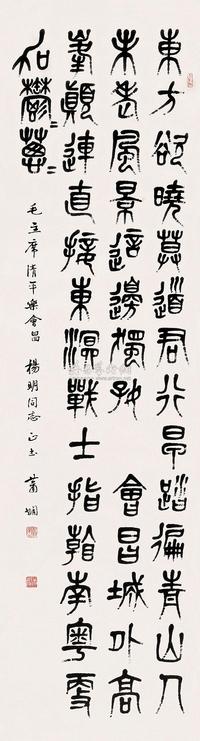 東方欲曉莫道君行早踏遍青山人
未老風景這邊獨好 會昌城外高
峯顛連直接東溟戰士指看南粵更
加鬱=蔥=
毛主席清平樂會昌 楊明同志正之 蕭嫻